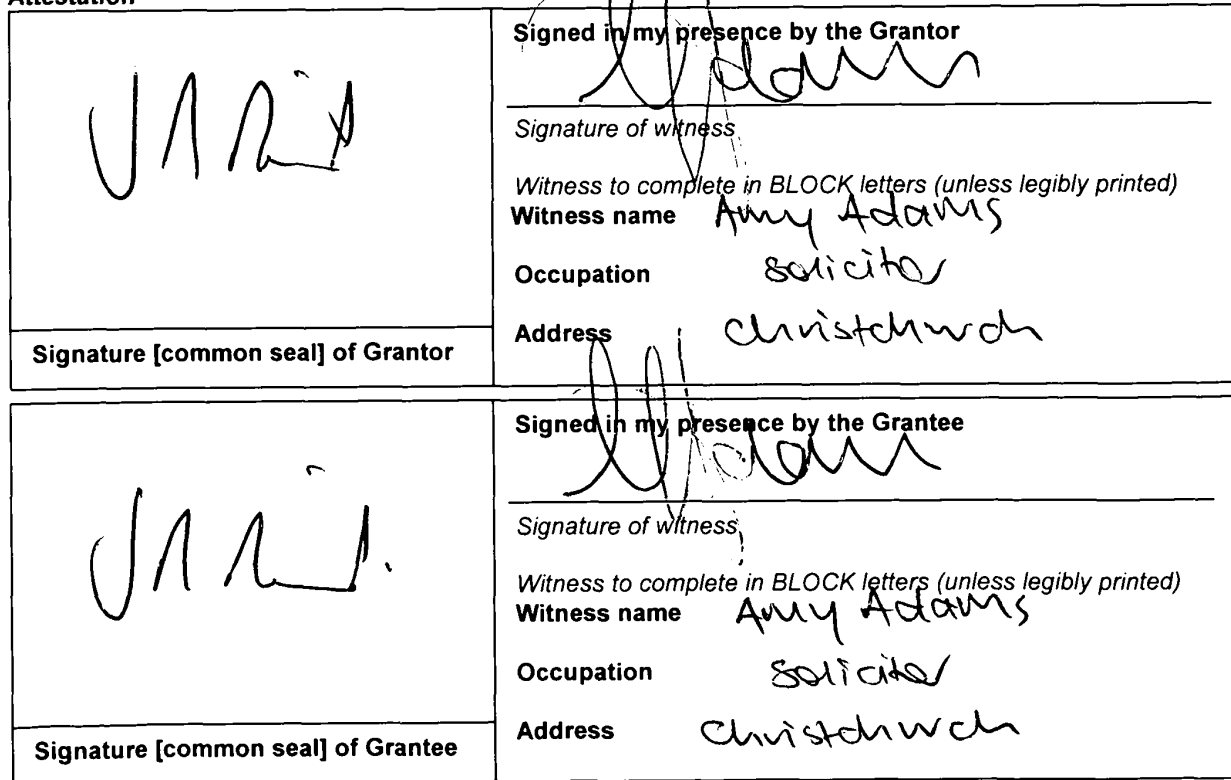 Attestation
Signed in my presence by the Grantor
Signature of witness
Witness to complete in BLOCK letters (unless legibly printed)
Witness name Amy Adams
Occupation solicitor
Address Christchurch
Signature [common seal] of Grantor
Signed in my presence by the Grantee
Signature of witness
Witness to complete in BLOCK letters (unless legibly printed)
Witness name Amy Adams
Occupation solicitor
Address Christchurch
Signature [common seal] of Grantee